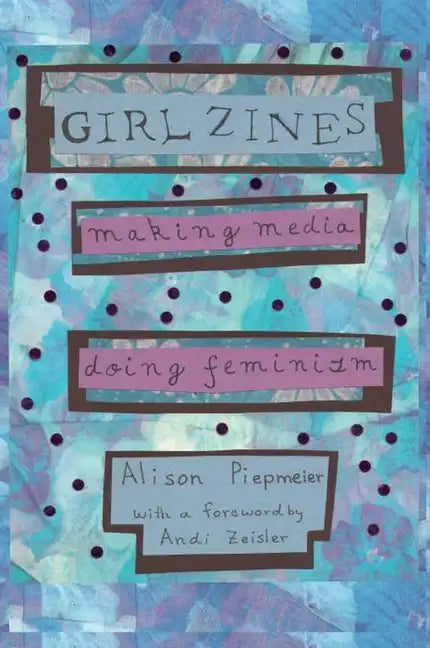 GIRL ZINES
making media
doing feminism
Alison Piepmeier
with a foreword by
Andi Zeisler